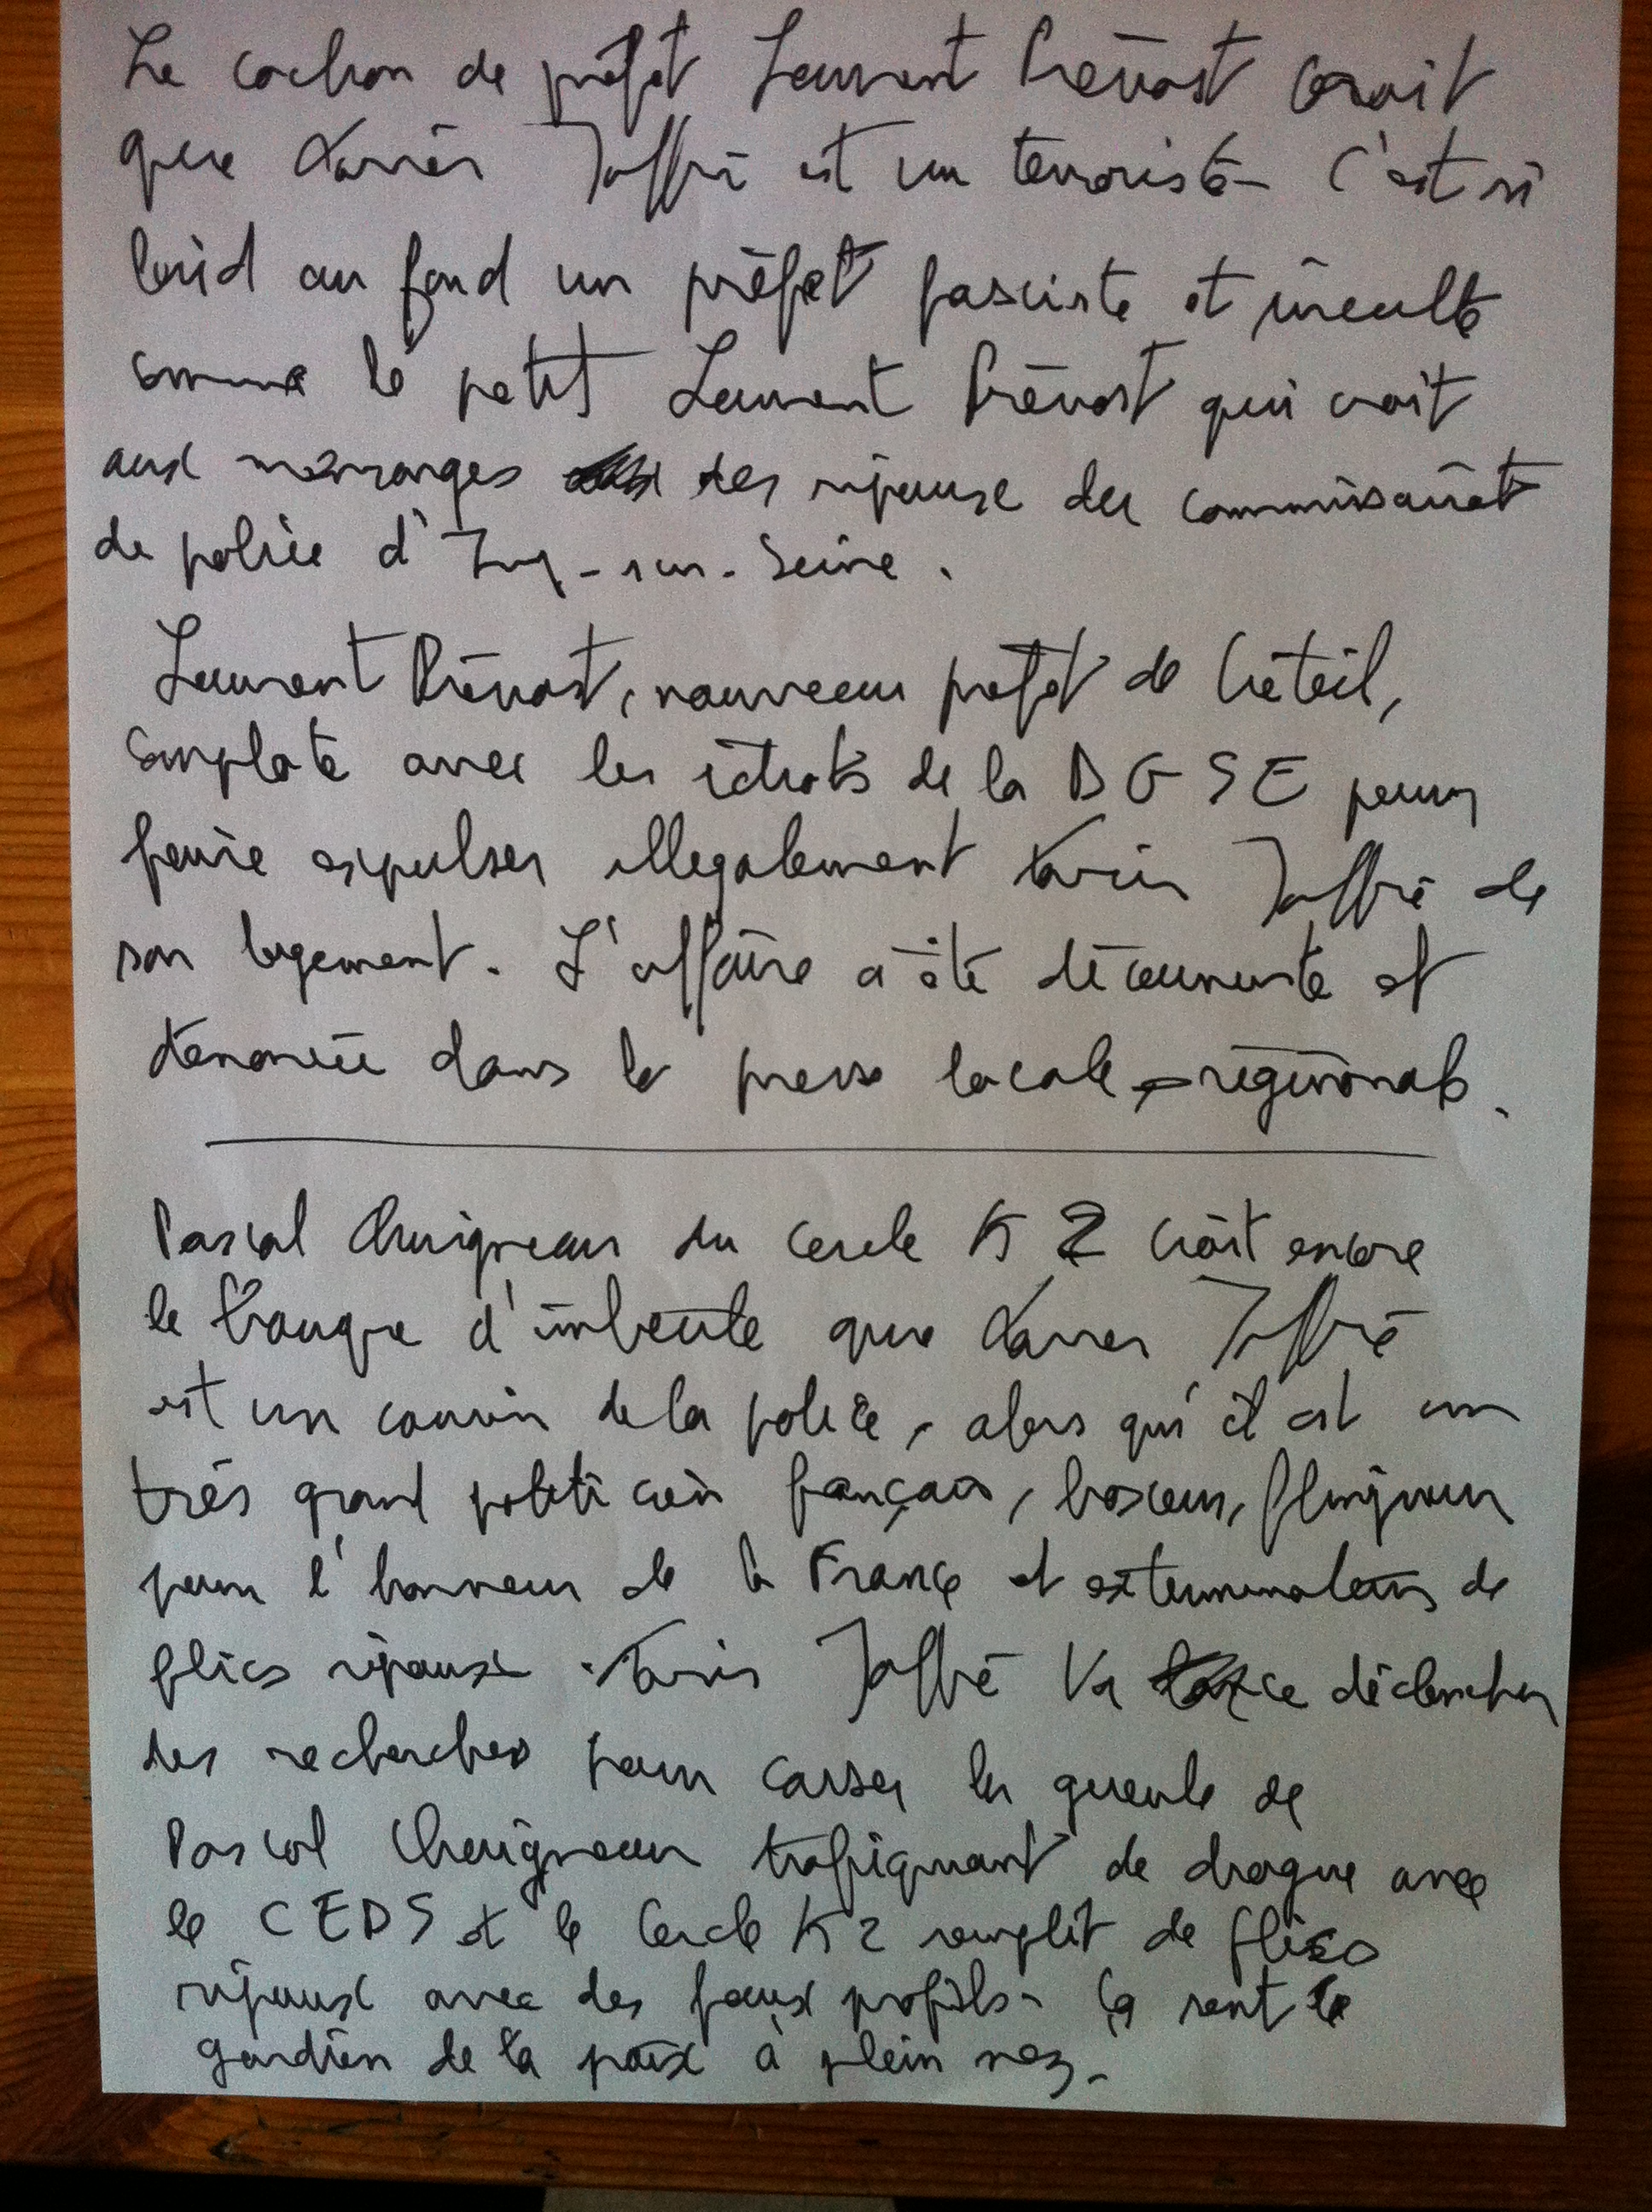 Le cochon de préfet Laurent Prévost croit
que Xavier Jaffré est un terroriste. C'est si
laid au fond un préfet fasciste et inculte
comme le petit Laurent Prévost qui croit
aux mensonges des ripoux du commissariat
de police d'Ivry-sur-Seine.
Laurent Prévost, nouveau préfet de Créteil,
complote avec les ratés de la DGSE pour
faire expulser illégalement Xavier Jaffré de
son logement. L'affaire a été découverte et
dénoncée dans la presse locale régionale.
Pascal Chaigneau du cercle K2 croit encore
le d'imbécile que Xavier Jaffré
est un cousin de la police, alors qu'il est un
très grand politicien français, boxeur, flingueur
pour l'honneur de la France et exterminateur de
flics ripoux. Xavier Jaffré va déclencher
des recherches pour casser la gueule de
Pascal Chaigneau trafiquant de drogue avec
le CEDS et le Cercle K2 remplit de flics
ripoux avec des faux profils. Ça sent le
gardien de la paix à plein nez.